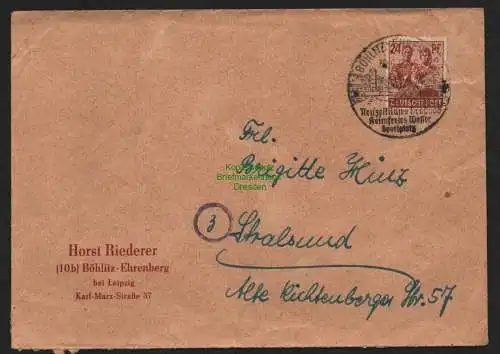 24 PF
BÖHLITZ-EHRENBERG
DEUTSCHE POST
Keimfreies Wasser
Sportplatz
Frl.
Brigitte Hinz
3
Stralsund
Alte Richtenberger Str. 57
Horst Riederer
(10b) Böhlitz-Ehrenberg
bei Leipzig
Karl-Marx-Straße 37
Briefmarken
Dresden